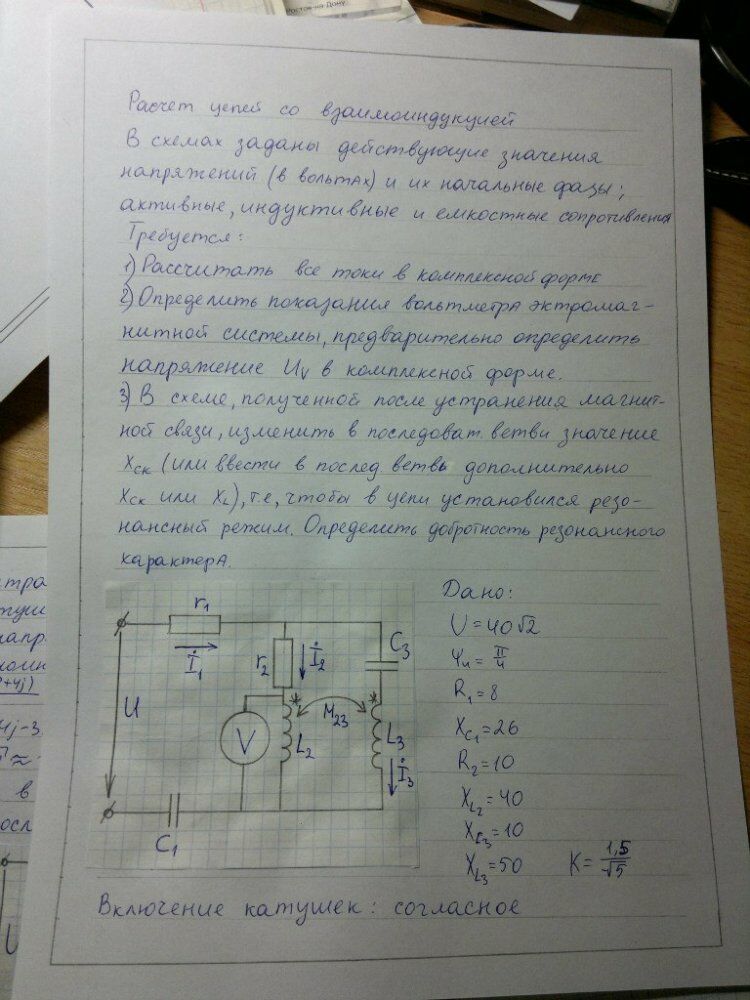 Ростов-на-Дону
Расчет цепей со взаимоиндукцией
В схемах заданы действующие значения
напряжений (в вольтах) и их начальные фазы;
активные, индуктивные и емкостные сопротивления
Требуется:
1) Рассчитать все токи в комплексной форме
2) Определить показания вольтметра эктромаг-
нитной системы, предварительно определить
напряжение Uv в комплексной форме.
3) В схеме, полученной после устранения магнит-
ной связи, изменить в последоват. ветви значение
Xск (или ввести в послед. ветвь дополнительно
Xск или XL), т.е, чтобы в цепи установился резо-
нансный режим. Определить добротность резонансного
характера.
r1
İ1
r2
İ2
C3
U
V
L2
M23
L3
İ3
C1
Дано:
U = 40√2
Ψu = π/4
R1 = 8
XC1 = 26
R2 = 10
XL2 = 40
XC3 = 10
XL3 = 50 K = 1,5/√5
Включение катушек: согласное
U